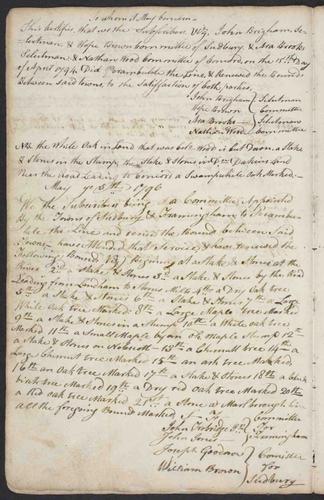 To whom it May Concern
This Certifies, that we the Subscribers Viz, John Brigham Se-
lectman & Hope Brown Committee of Sudbury & Asa Brooks
Selectman & Nathan Wood Committee of Concord on the 15th Day
of April 1794. Did Perambulate the Line, & Renewed the Bounds
Between said towns, to the Satisfaction of both parties.
John Brigham } Selectman
Hope Brown } Committee
Asa Brooks } Selectman
Nathan Wood } Committee
NB the White Oak in Land that was Cut Down, a Stake
& Stones in the Stump, the Stake & Stones in Dea Dakins Land
Near the road Leading to Concord a Swampwhite Oak Marked
May ye 5th 1796
We the Subscribers being a Committee Appointed
By the Towns of Sudbury & Framingham to Peram-
bulate the Line and renew the Bounds between Said
Towns have Attended that Service, & have renewed the
following Bounds Viz Begining at a Stake & Stones at the
River 2d a Stake & Stones 3d a Stake & Stones by the Road
Leading from Landham to Stones Mills 4th a Dry Oak tree
5th a Stake & Stones 6th a Stake & Stones 7th a Large
White Oak tree Marked 8th a Large Maple tree Marked
9th a Stake & Stones in a Stump 10th a White Oak tree
Marked 11th a Small Maple by an Old Maple Stump 12th
a Stake & Stones on 13th a Chesnutt tree 14th a
Large Chesnutt tree Marked 15th an oak tree Marked
16th an Oak tree Marked 17th a Stake & Stones 18th a black
birch tree Marked 19th a Dry red Oak tree Marked 20th
a Red oak tree Marked 21st a Stone at Marlborough line
all the foregoing Bounds Marked
John Committee
John Jones For
Framingham
Joseph Goodnow } Committee
William Brown } For
Sudbury